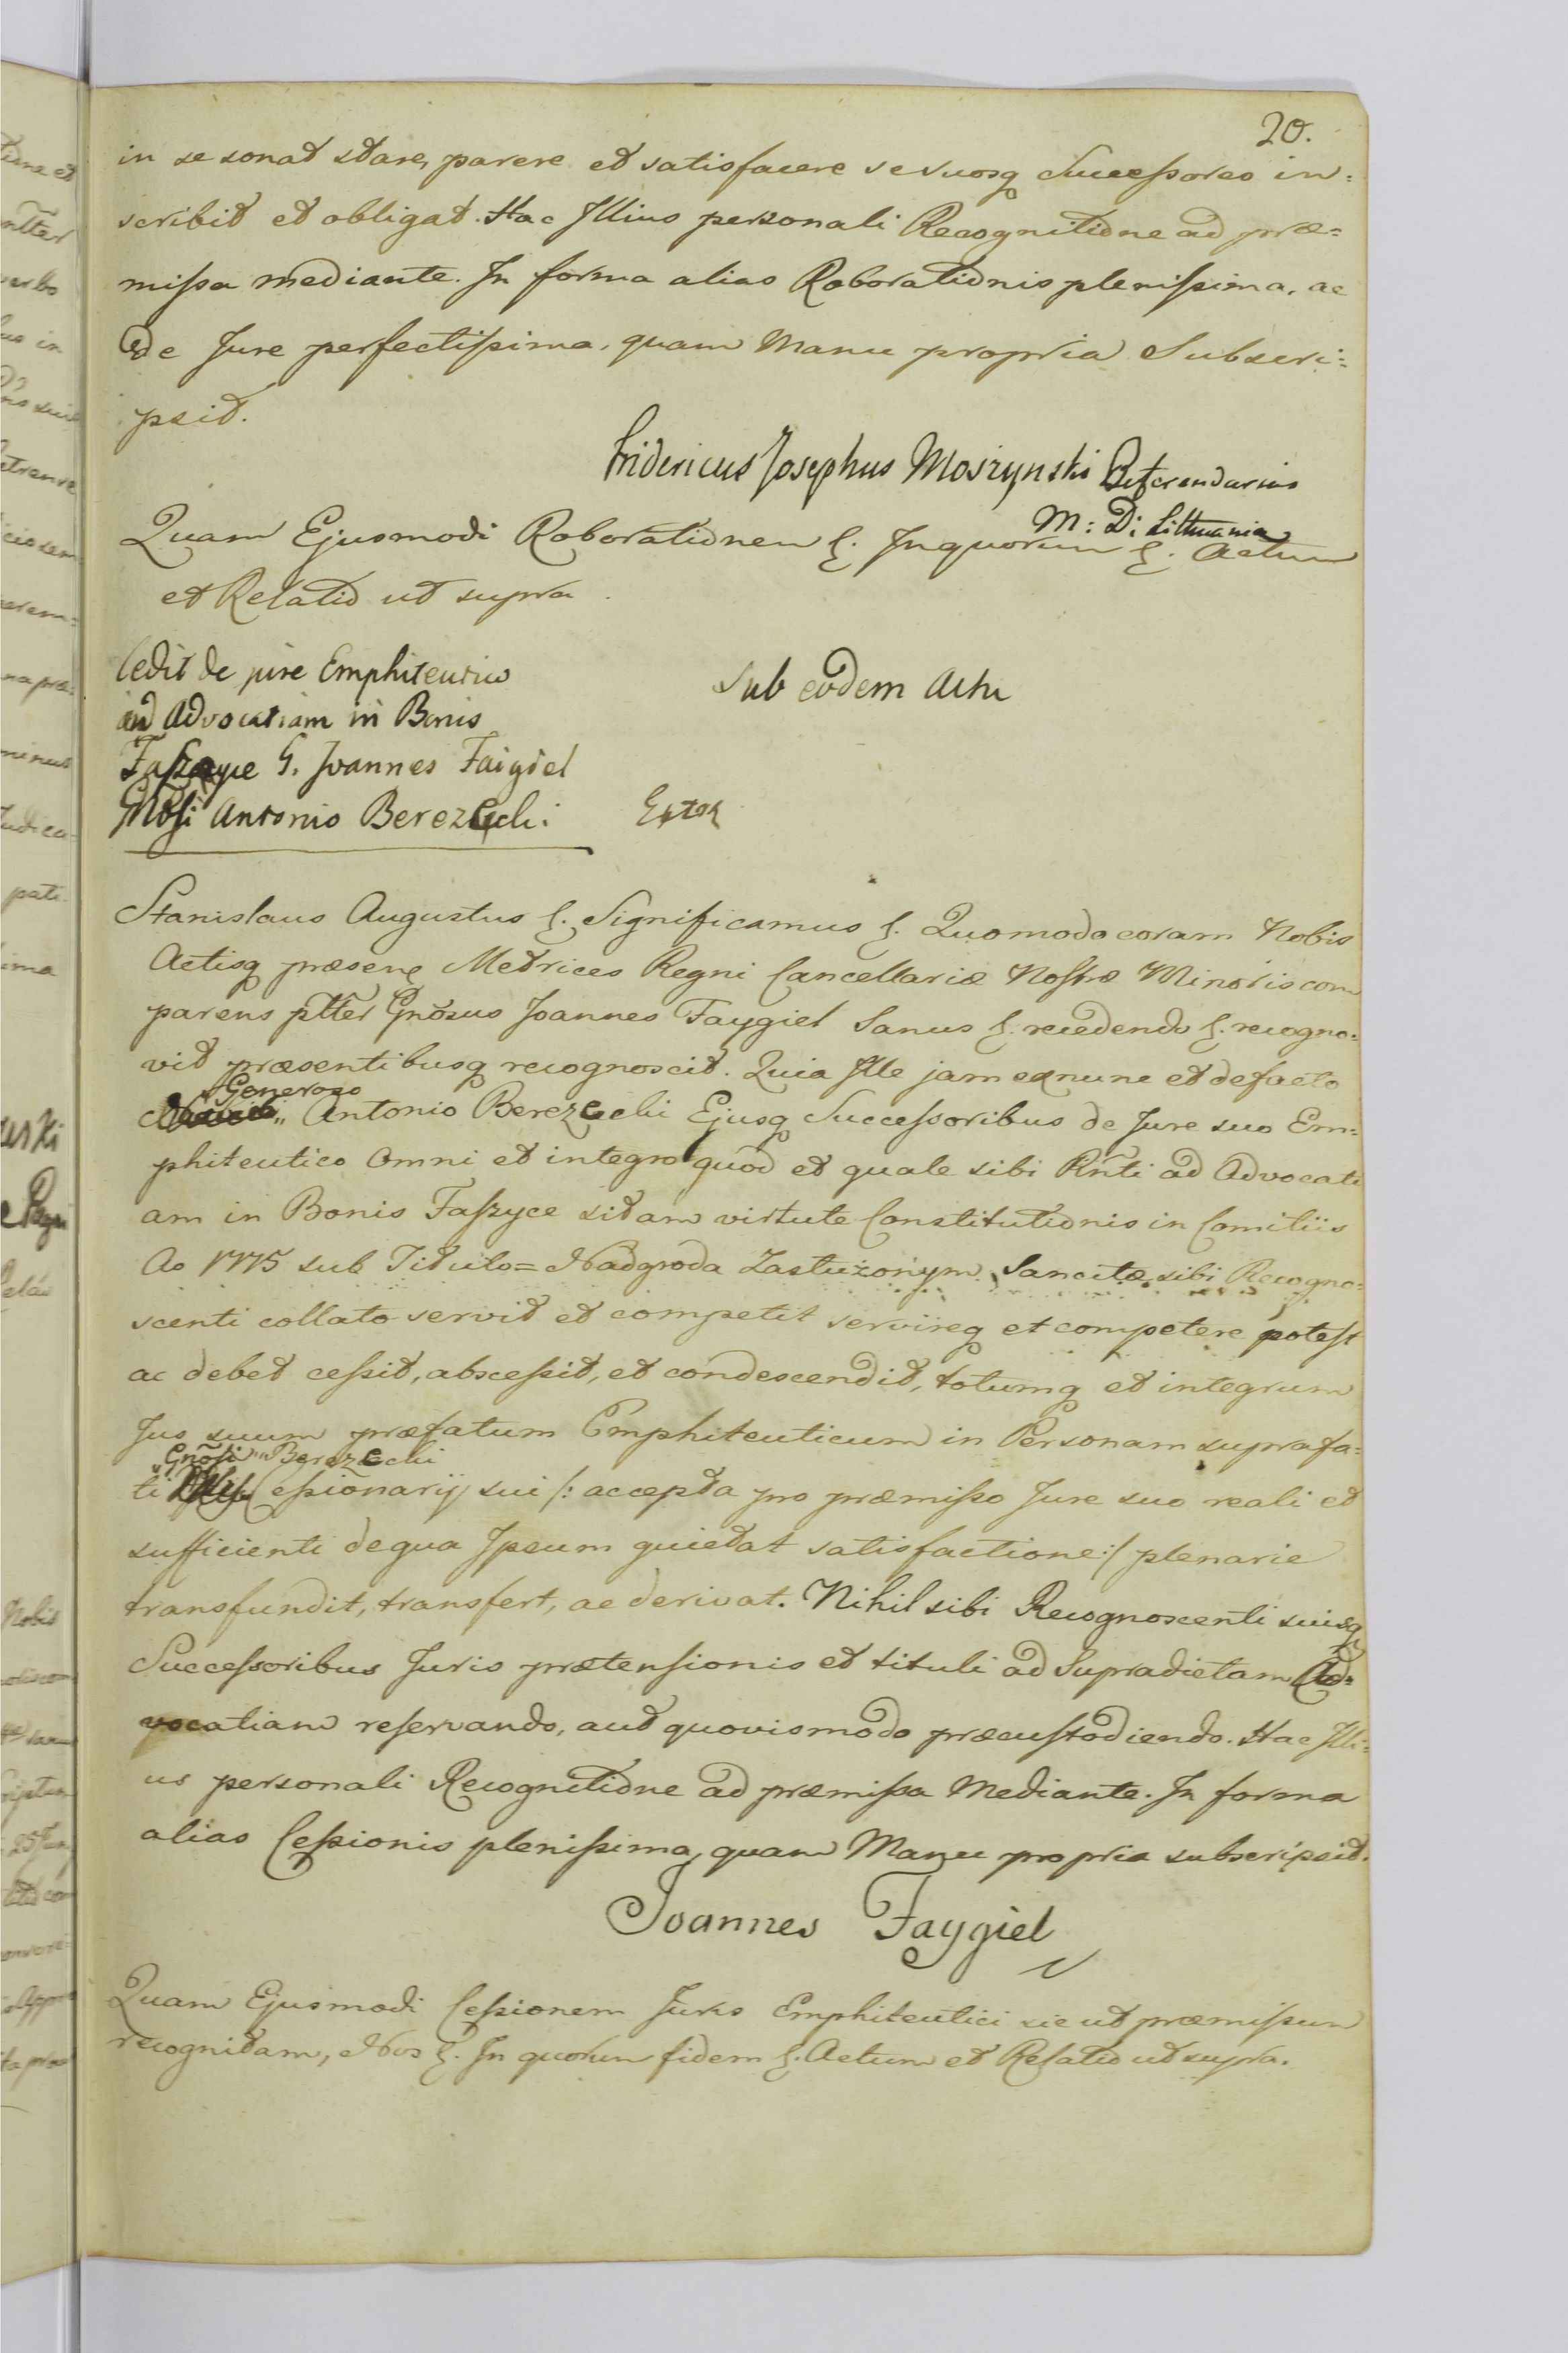 20.
in se sonat stare, parere et satisfacere se suosq Successores in=
scribit et obligat. Hac Illius personali Recognitione ad præ=
missa mediante. In forma alias Roborationis plenissima, ac
de Jure perfectissima, quam Manu propria Subscri=
psit.
Fridericus Josephus Moszynski Referendarius
M: D: Lithuaniæ
Quam Ejusmodi Roborationem &. In quorum &. Actum
et Relatio ut supra.
Cedit de jure Emphiteutico
ad Advocatiam in Bonis
Faszyce G. Joannes Faigiel
Gnosi Antonio Berezecki:
Sub eodem Actu
Extor
Stanislaus Augustus &. Significamus &. Quomodo coram Nobis
Actisq præsent Metrices Regni Cancellariæ Nostræ Minoris com
parens pltter Gnõsus Joannes Faygiel Sanus &. recedendo &. recogno=
vit præsentibusq recognoscit. Quia Ille jam ex nunc et defacto
Generoso
Antonio Berezecki Ejusq Successoribus de Jure suo Em=
phiteutico Omni et integro quod et quale sibi Rñti ad Advocati
am in Bonis Faszyce sitam virtute Constitutionis in Comitiis
Ao 1775 sub Titulo= Nadgroda Zasłużonym. Sancitæ sibi Recogno=
scenti collato servit et competit servireq et competere potest
ac debet cessit, abscessit, et condescendit, totumq et integrum
Jus suum præfatum Emphiteuticum in Personam suprafa=
Gnõsi Berezecki
ti Cessionarij sui /: accepta pro præmisso Jure suo reali et
sufficienti de qua Ipsum quietat satisfactione :/ plenarie
transfundit, transfert, ac derivat. Nihil sibi Recognoscenti suisq
Successoribus Juris prætensionis et tituli ad Supradictam Ad=
vocatiam reservando, aut quovismodo præcustodiendo. Hac Illi=
us personali Recognitione ad præmissa Mediante. In forma
alias Cessionis plenissima, quam Manu propria subscripsit.
Joannes Faygiel
Quam Ejusmodi Cessionem Juris Emphiteutici sic ut præmissum
recognitam, Nos &. In quorum fidem &. Actum et Relatio ut supra.